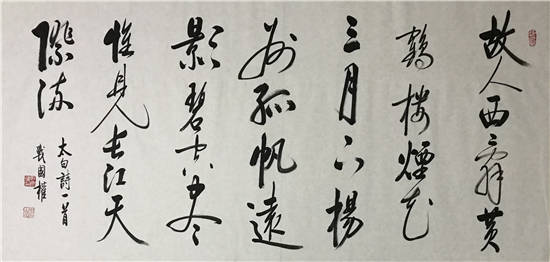 故人西辞黄
鶴樓煙花
三月下揚
州孤帆遠
影碧空尽
惟見長江天
際流
太白詩一首
國權